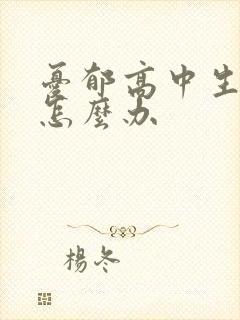 憂郁高中生
怎麼办
楊冬